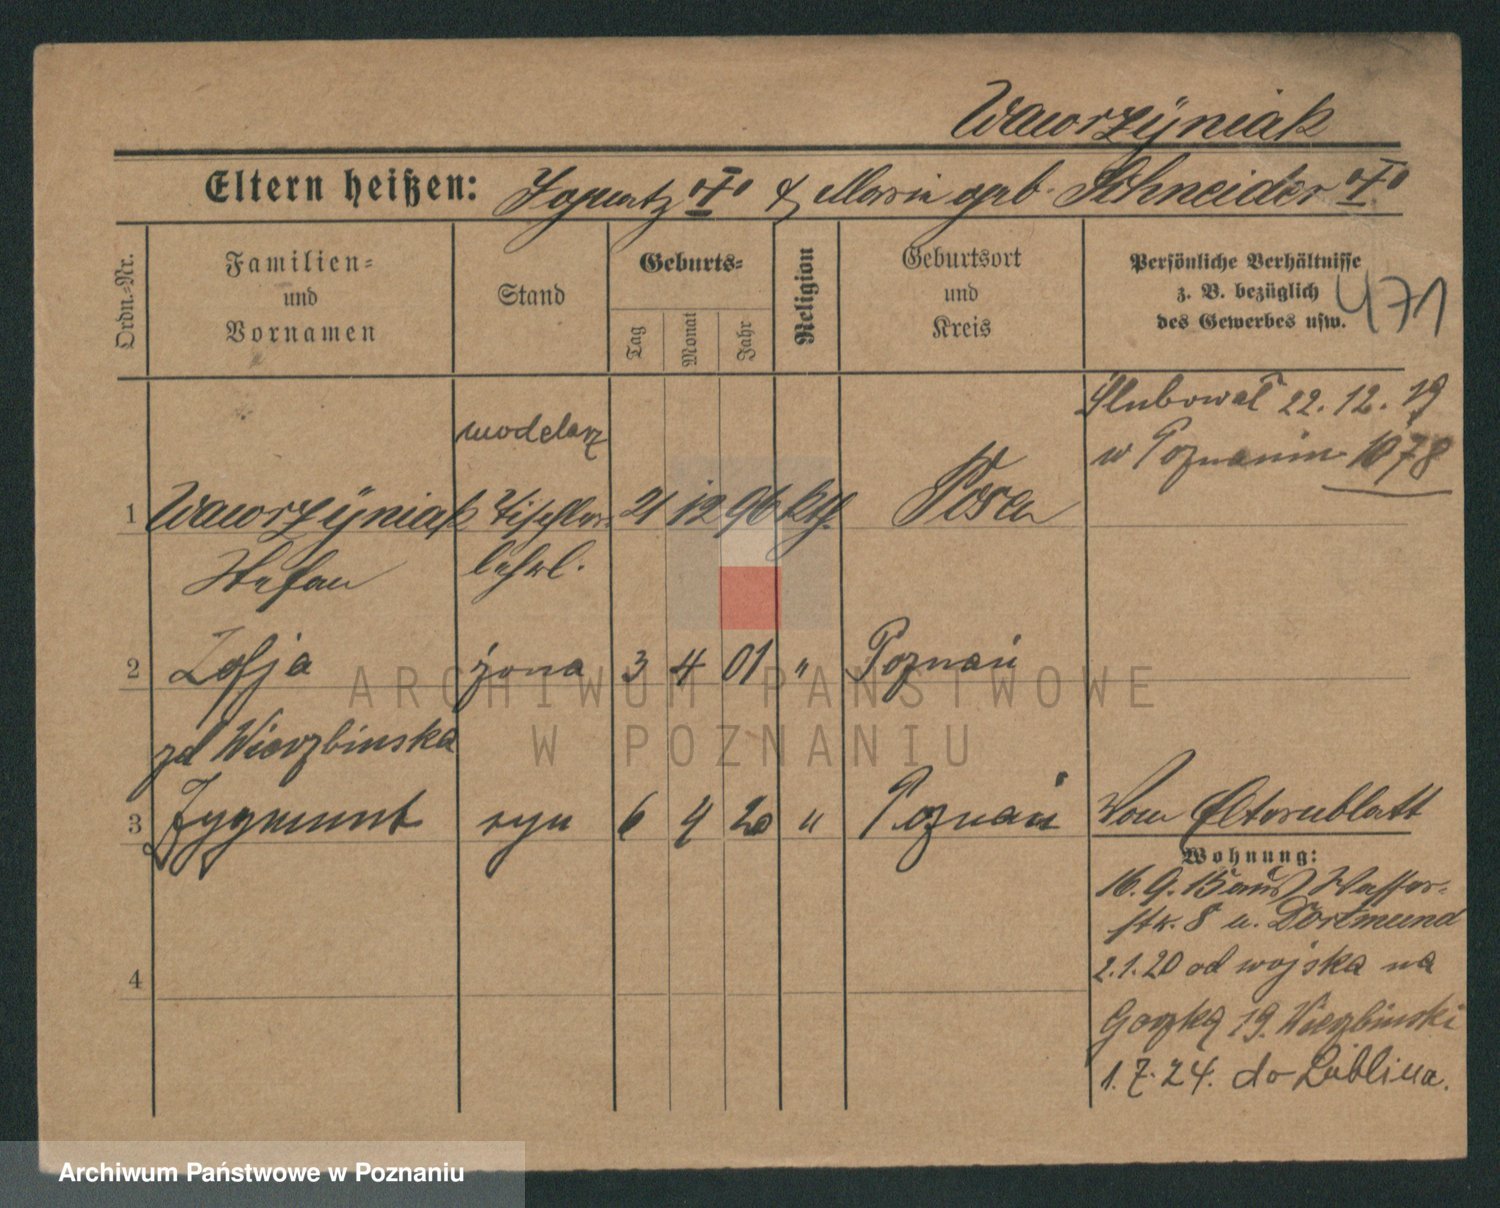 Wawrzÿniak
Eltern heißen: Ignatz & Marie geb. Schneider
Ordn.-Nr.
Familien- und Vornamen
Stand
Geburts-
Tag
Monat
Jahr
Religion
Geburtsort und Kreis
Persönliche Verhältnisse
z. B. bezüglich
des Gewerbes usw.
471
Ślubował 22. 12. 19
w Poznaniu 1078
modelarz
1 Wawrzÿniak Tischler- 21 12 96 kth. Posen
Stefan lehrl.
2 Zofja żona 3 4 01 " Poznań
zd Wierzbinska
3 Zygmunt syn 6 9 20 " Poznań
Vom Elternblatt
Wohnung:
16. 9. 15 aus Wasser-
str. 8 u. Dortmund
2. 1. 20 od wojska na
Gorzką 19. Wierzbinski
1. 7. 24. do Lublina.
4
ARCHIWUM PAŃSTWOWE
W POZNANIU
Archiwum Państwowe w Poznaniu